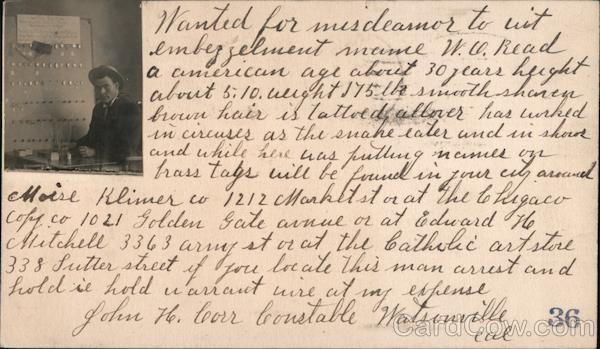 Wanted for misdeamor to wit
embezzelment name W.W. Read
a american age about 30 years height
about 5.10. weight 175 lbs smooth shaven
brown hair is tattoed allover has worked
in circuses as the snake eater and in shows
and while here was putting names on
brass tags will be found in your city around
Moise Klimer co 1212 Market st or at the Chicgaco
Copy co 1021 Golden Gate avnue or at Edward H
Mitchell 3363 army st or at the Catholic art store
338 Sutter street if you locate this man arrest and
hold ie hold warrant wire at my expense
John H. Corr Constable Watsonville
Cal
36
CardCow.com